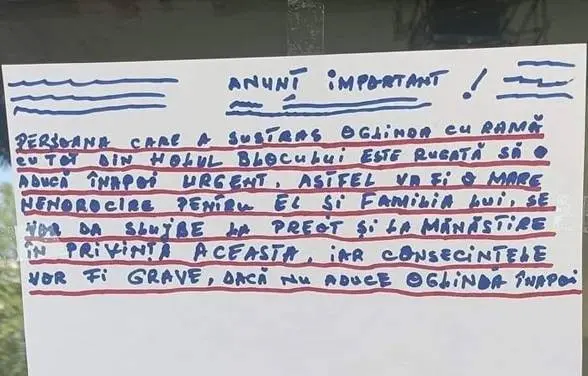 ANUNȚ IMPORTANT !
PERSOANA CARE A SUSTRAS OGLINDA CU RAMĂ
CU TOT DIN HOLUL BLOCULUI ESTE RUGATĂ SĂ O
ADUCĂ ÎNAPOI URGENT, ASTFEL VA FI O MARE
NENOROCIRE PENTRU EL ȘI FAMILIA LUI, SE
VOR DA SLUJBE LA PREOT ȘI LA MĂNĂSTIRE
ÎN PRIVINȚA ACEASTA, IAR CONSECINȚELE
VOR FI GRAVE, DACĂ NU ADUCE OGLINDA ÎNAPOI